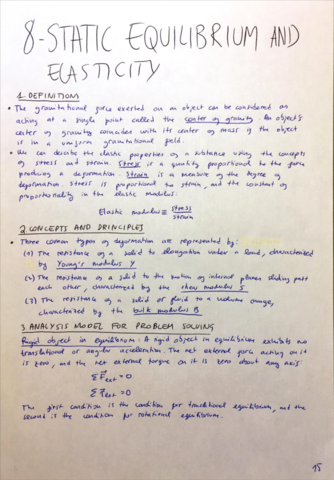 8-STATIC EQUILIBRIUM AND
ELASTICITY
1 DEFINITIONS
• The gravitational force exerted on an object can be considered as
acting at a single point called the center of gravity. An object's
center of gravity coincides with its center of mass if the object
is in a uniform gravitational field.
• We can describe the elastic properties of a substance using the concepts
of stress and strain. Stress is a quantity proportional to the force
producing a deformation. Strain is a measure of the degree of
deformation. Stress is proportional to strain, and the constant of
proportionality is the elastic modulus:
Elastic modulus ≡ stress
strain
2 CONCEPTS AND PRINCIPLES
• Three common types of deformation are represented by:
(1) The resistance of a solid to elongation under a load, characterized
by Young's modulus Y
(2) The resistance of a solid to the motion of internal planes sliding past
each other, characterized by the shear modulus S
(3) The resistance of a solid or fluid to a volume change,
characterized by the bulk modulus B
3 ANALYSIS MODEL FOR PROBLEM SOLVING
Rigid object in equilibrium: A rigid object in equilibrium exhibits no
translational or angular acceleration. The net external force acting on it
is zero, and the net external torque on it is zero about any axis:
∑F⃗ext = 0
∑τ⃗ext = 0
The first condition is the condition for translational equilibrium, and the
second is the condition for rotational equilibrium.
15